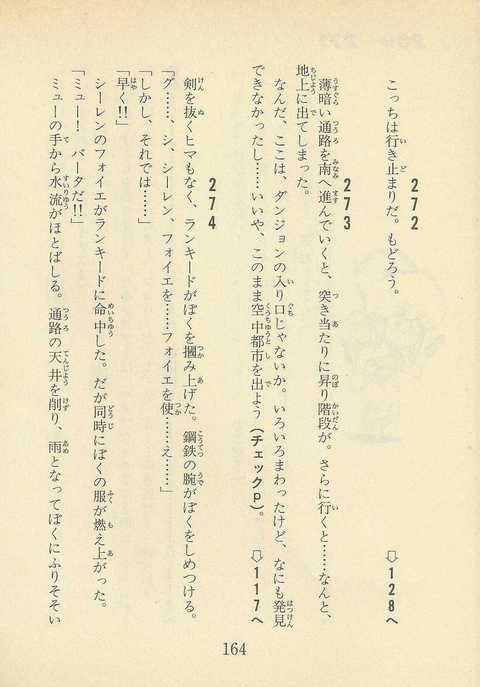 272
こっちは行き止まりだ。もどろう。
⇨128へ
273
薄暗い通路を南へ進んでいくと、突き当たりに昇り階段が。さらに行くと……なんと、
地上に出てしまった。
なんだ、ここは、ダンジョンの入り口じゃないか。いろいろまわったけど、なにも発見
できなかったし……いいや、このまま空中都市を出よう(チェックp)。
⇨117へ
274
剣を抜くヒマもなく、ランキードがぼくを摑み上げた。鋼鉄の腕がぼくをしめつける。
「グ……、シ、シーレン、フォイエを……フォイエを使……え……」
「しかし、それでは……」
「早く!!」
シーレンのフォイエがランキードに命中した。だが同時にぼくの服が燃え上がった。
「ミュー! バータだ!!」
ミューの手から水流がほとばしる。通路の天井を削り、雨となってぼくにふりそそい
164